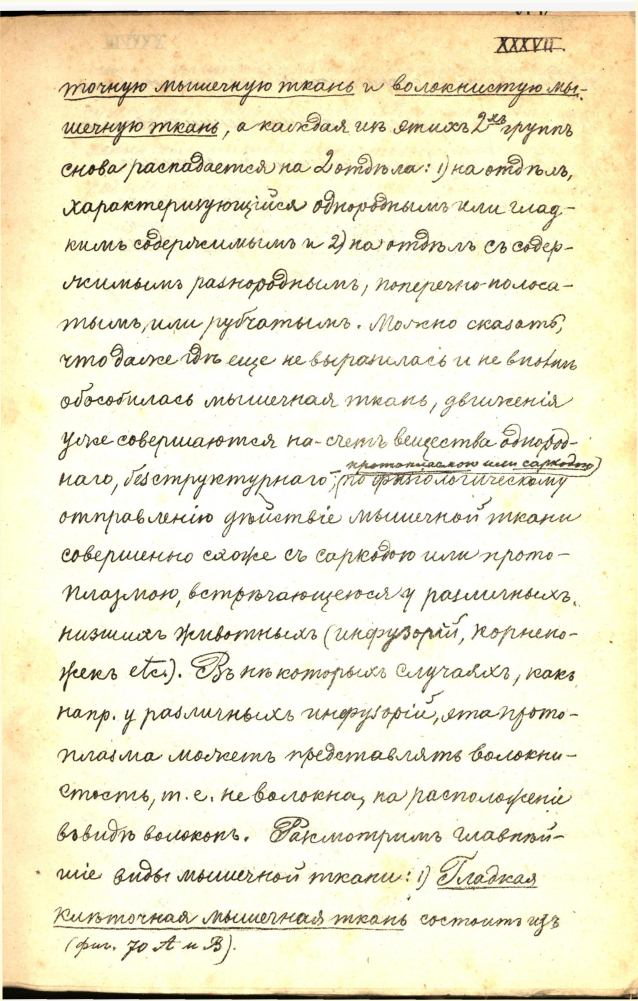 XXXVII.
точную мышечную ткань и волокнистую мы-
шечную ткань, а каждая из этихъ 2хъ группъ
снова распадается на 2 отдѣла: 1) на отдѣлъ,
характеризующійся однороднымъ или глад-
кимъ содержимымъ и 2) на отдѣлъ съ содер-
жимымъ разнороднымъ, поперечно-полоса-
тымъ, или рубчатымъ. Можно сказать,
что даже гдѣ еще не выразилась и не вполнѣ
обособилась мышечная ткань, движенія
уже совершаются на-счетъ вещества однород-
протоплазмою или саркодою)
наго, безструктурнаго; (по физіологическому
отправленію дѣйствіе мышечной ткани
совершенно схоже съ саркодою или прото-
плазмою, встрѣчающеюся у различныхъ
низшихъ животныхъ (инфузорій, корнено-
жекъ etc.). Въ нѣкоторыхъ случаяхъ, какъ
напр. у различныхъ инфузорій, эта прото-
плазма можетъ представлять волокни-
стость, т. е. не волокна, на расположеніе
въ видѣ волоконъ. Разсмотримъ главнѣй-
шіе виды мышечной ткани: 1) Гладкая
клѣточная мышечная ткань состоитъ изъ
(фиг. 70 А и В).